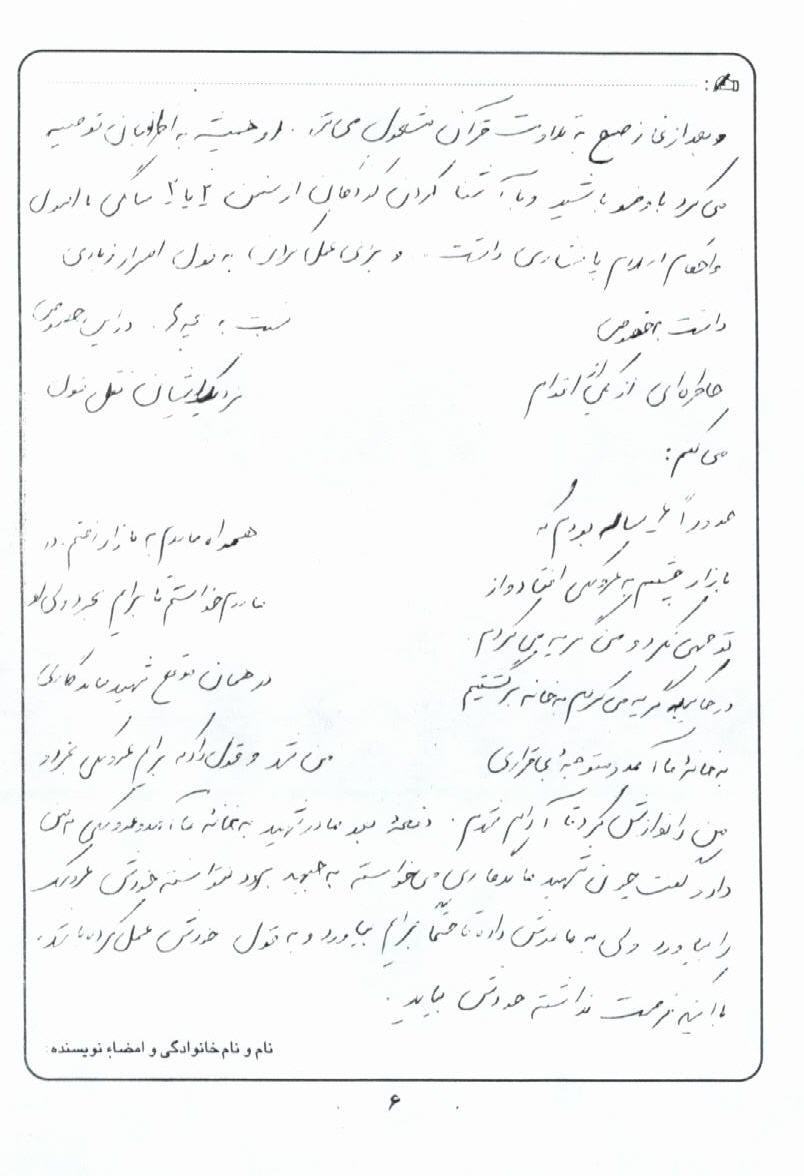 و بعد از نماز صبح به تلاوت قرآن مشغول می‌شد. او همیشه به اطرافیان توصیه
می‌کرد با وضو باشید و با آشنا کردن کودکان از سنین ۲ یا ۳ سالگی با اصول
و احکام اسلام پافشاری داشت. و برای عمل کردن به قول اصرار زیادی
داشت بخصوص نسبت به بچه‌ها. در این خصوص
خاطره‌ای از یکی از اقوام نزدیک ایشان نقل قول
می‌کنم:
حدوداً ساله بودم که همراه مادرم به بازار رفتم. در
بازار چشمم به عروسکی افتاد و از مادرم خواستم تا برایم بخرد ولی او
توجهی نکرد و من گریه می‌کردم.
در حالیکه گریه می‌کردم به خانه برگشتیم در همان موقع شهید
به خانۀ ما آمد و متوجۀ بی‌قراری من شد و قول داد که برایم عروسکی بخرد و
من را نوازش کرد تا آرام شدم. دفعۀ بعد مادر شهید به خانۀ ما آمد و عروسکی به من
داد و گفت چون شهید می‌خواسته به جبهه برود نتوانسته خودش عروسک
را بیاورد ولی به مادرش داده تا حتماً برایم بیاورد و به قول خودش عمل کرده باشد.
با اینکه فرصت نداشته خودش بیاید.
نام و نام خانوادگی و امضاء نویسنده:
۶